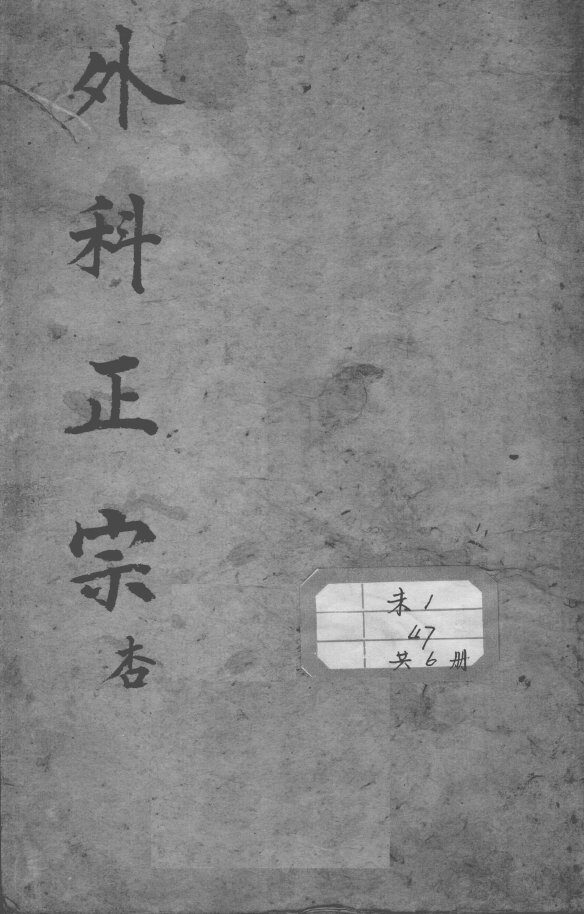 外科正宗
杏
未1
47
共6册